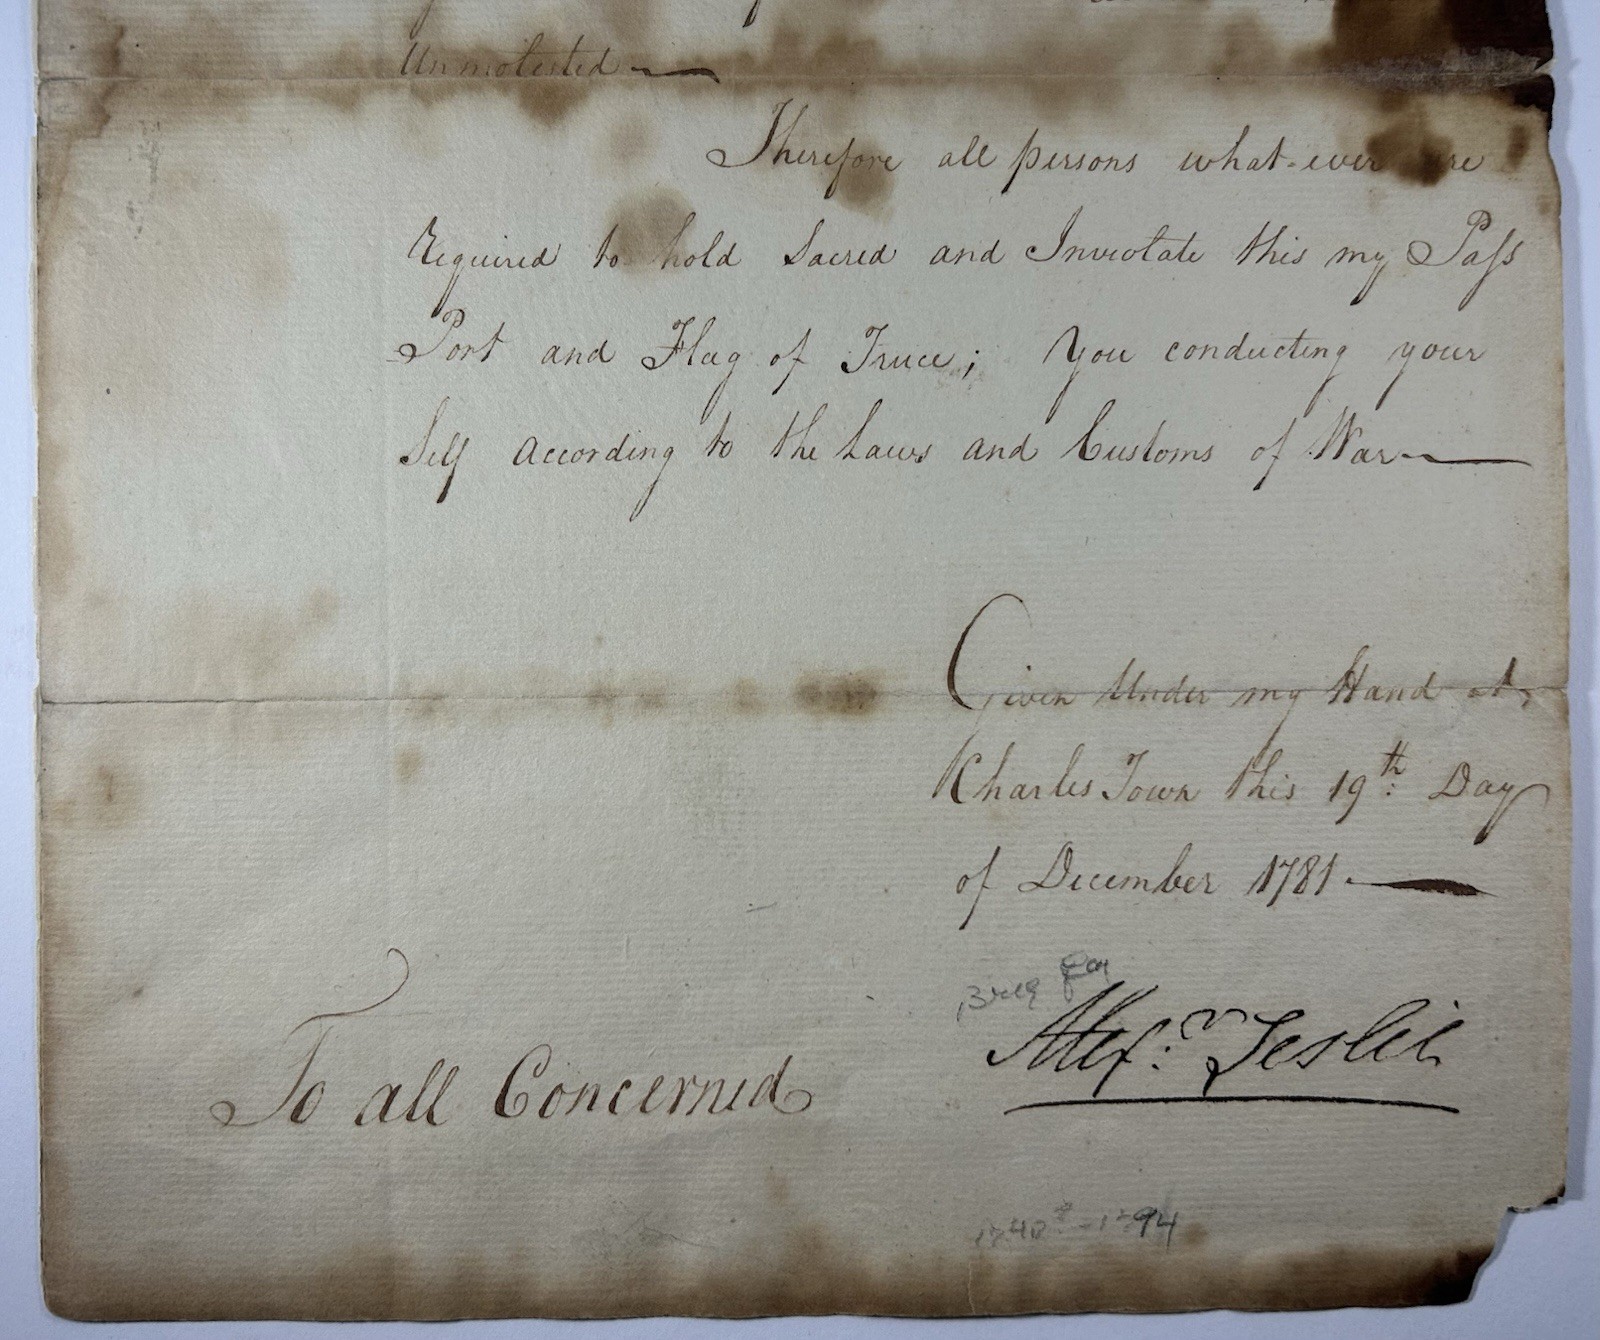 Unmolested
Therefore all persons what-ever are
required to hold Sacred and Inviolate this my Pass
Port and Flag of Truce; You conducting your
Self According to the Laws and Customs of War
Given Under my Hand at
Charles Town this 19th. Day
of December 1781
Brig Gen
Alexr. Leslie
To all Concerned